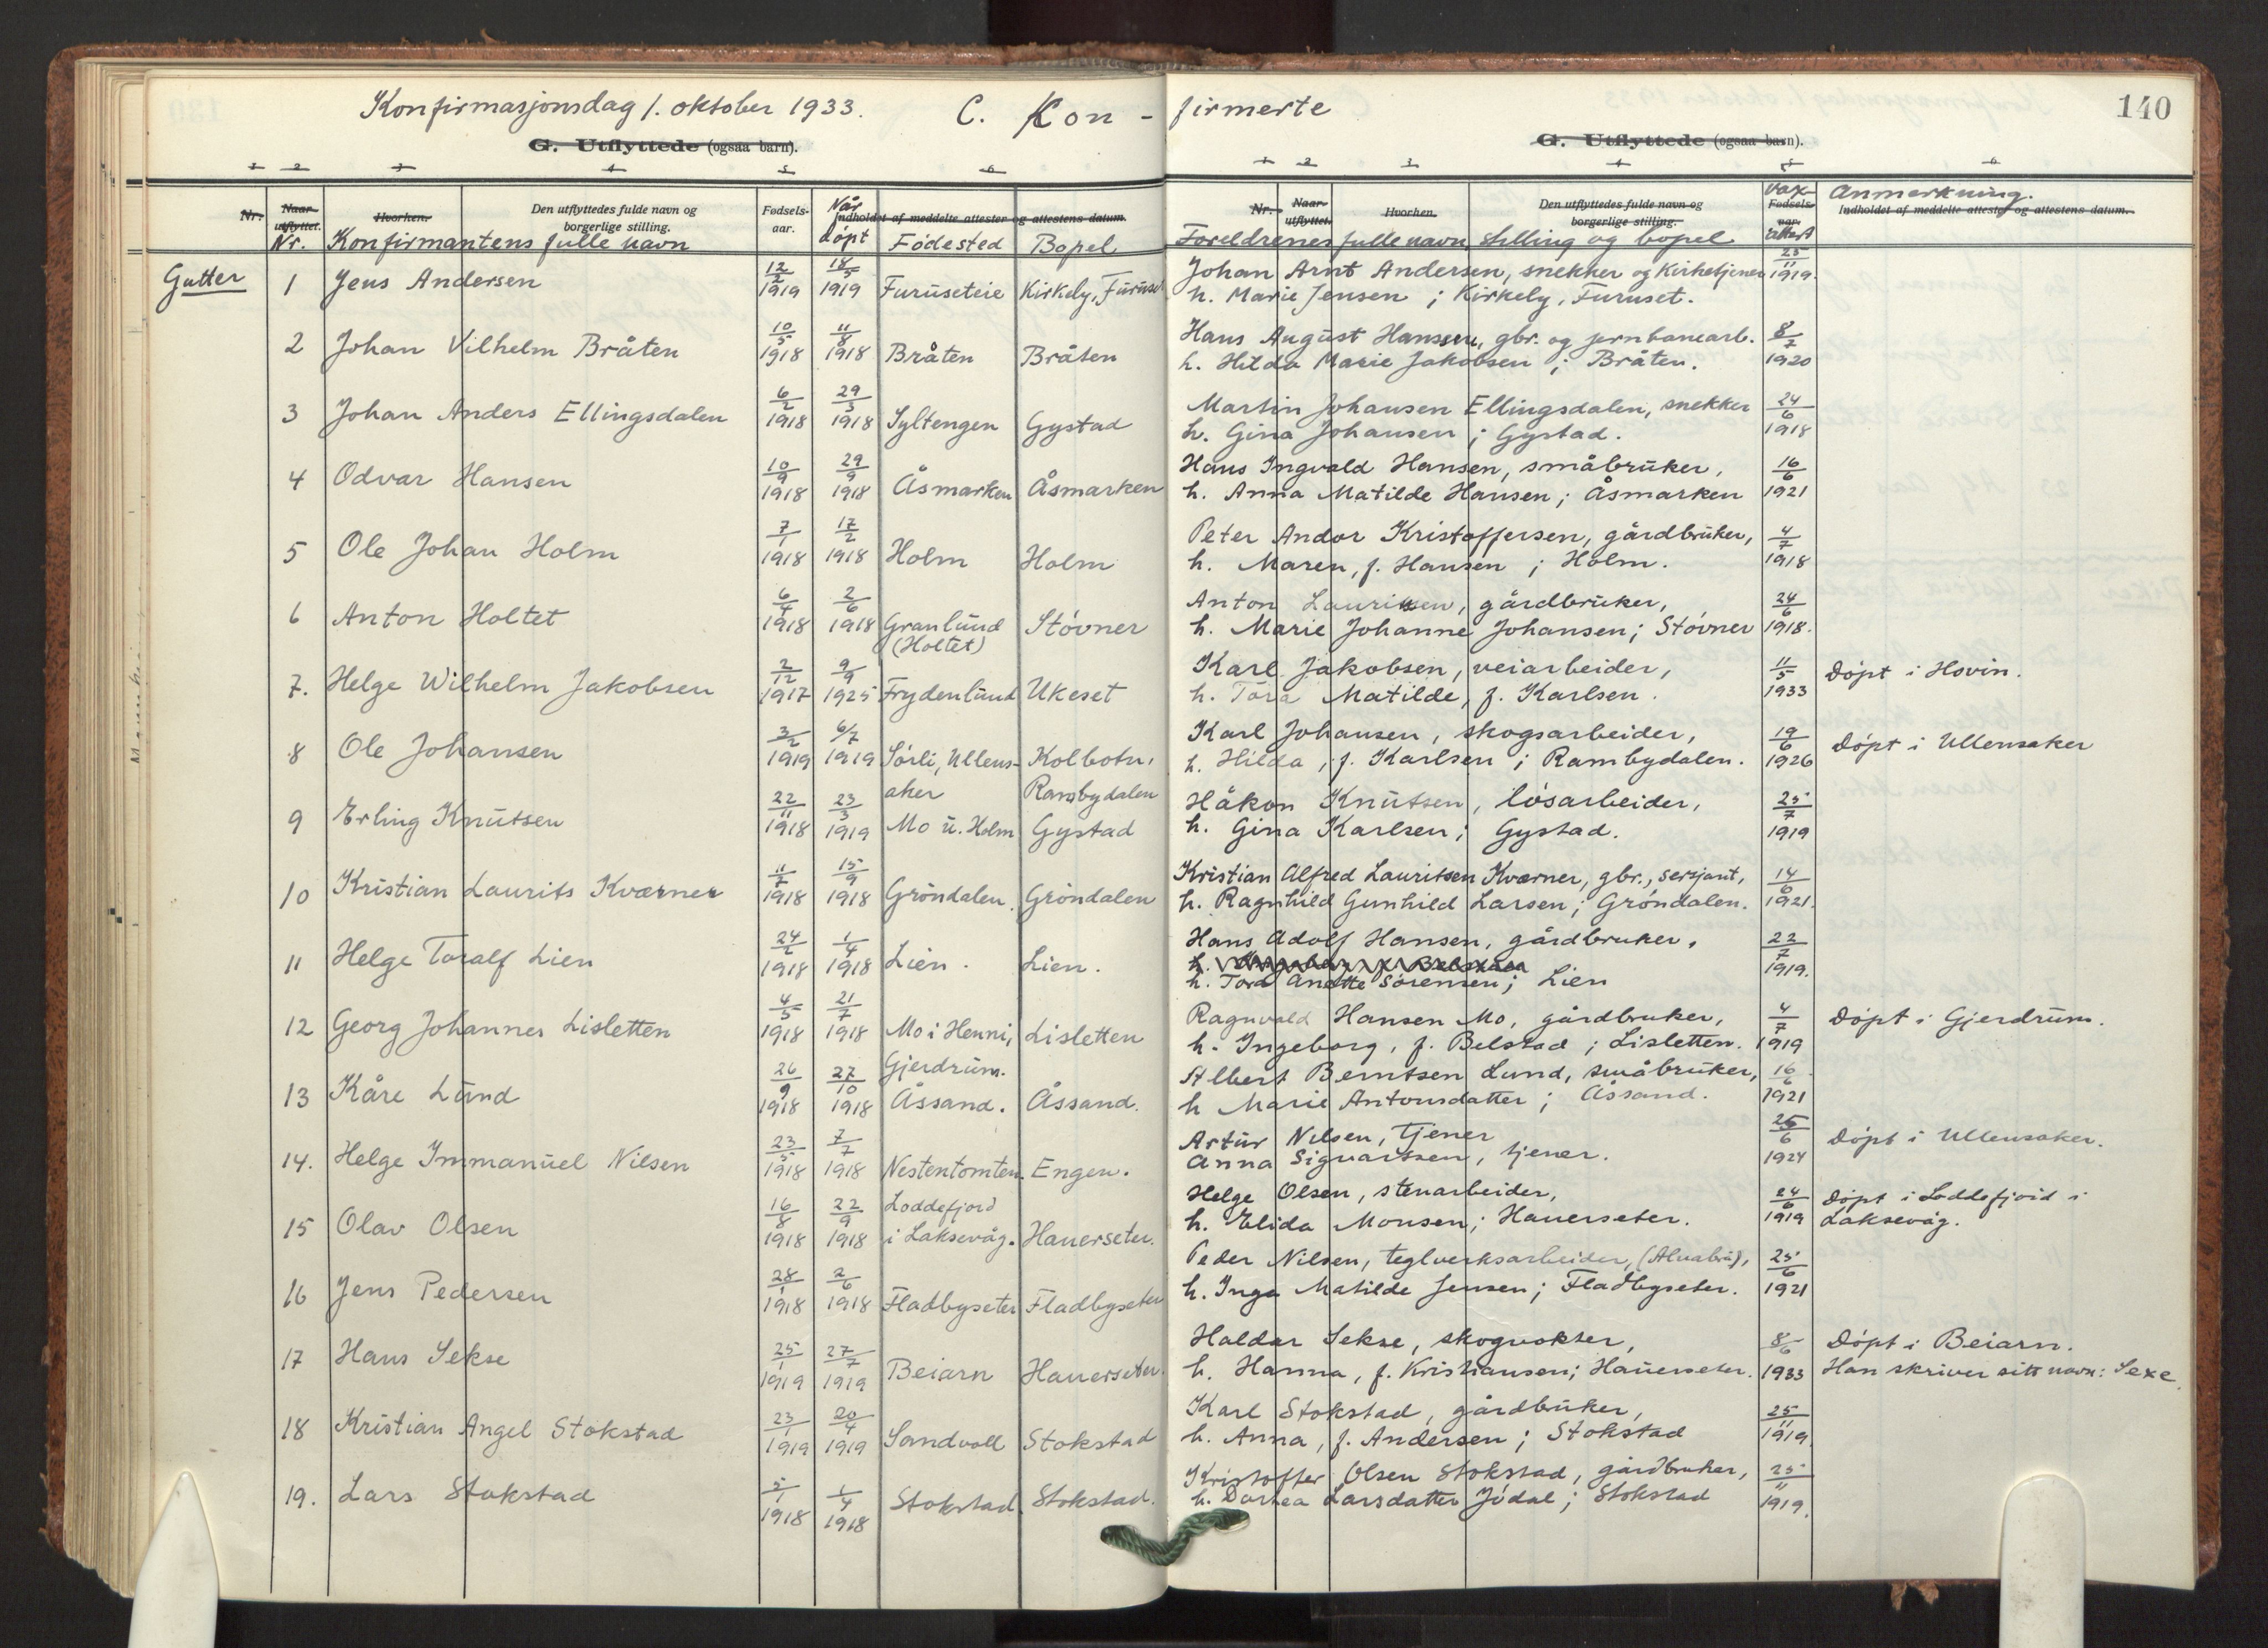 Konfirmasjonsdag 1. oktober 1933. C. Kon-firmerte 140
G. Utflyttede (ogsaa barn). G. Utflyttede (ogsaa barn).
1 2 3 4 5 6 1 2 3 4 5 6
Nr. Naar utflyttet. Hvorhen. Den utflyttedes fulde navn og borgerlige stilling. Fødsels-aar. Indholdet af meddelte attester og attestens datum. Nr. Naar utflyttet. Hvorhen. Den utflyttedes fulde navn og borgerlige stilling. Fødsels-aar. Indholdet af meddelte attester og attestens datum.
Nr. Konfirmantens fulle navn Når døpt Fødested Bopel Foreldrenes fulle navn stilling og bopel Vax. attest Anmerkning.
Gutter 1 Jens Andersen 12/2 1919 18/5 1919 Furuseteie Kirkely, Furuset Johan Arnt Andersen, snekker og Kirketjener 25/11 1919.
h. Marie Jensen; Kirkely, Furuset.
2 Johan Vilhelm Bråten 10/5 1918 11/8 1918 Bråten Bråten Hans August Hanssen, gbr. og jernbanearb. 8/7 1920
h. Hilda Marie Jakobsen; Bråten.
3 Johan Anders Ellingsdalen 6/2 1918 29/3 1918 Syltengen Gystad Martin Johansen Ellingsdalen, snekker 24/6 1918
h. Gina Johansen; Gystad.
4 Odvar Hansen 10/9 1918 29/9 1918 Åsmarken Åsmarken Hans Ingvald Hansen, småbruker, 16/6 1921
h. Anna Matilde Hansen; Åsmarken
5 Ole Johan Holm 7/1 1918 17/2 1918 Holm Holm Peter Andor Kristoffersen, gårdbruker, 4/7 1918
h. Maren, f. Hansen; Holm.
6 Anton Holtet 6/4 1918 2/6 1918 Granlund (Holtet) Støvner Anton Lauritsen, gårdbruker, 24/6 1918.
h. Marie Johanne Johansen; Støvner
7. Helge Wilhelm Jakobsen 2/12 1917 9/9 1925 Frydenlund Ukeset Karl Jakobsen, veiarbeider, 11/5 1933 Døpt i Hovin.
h. Tora Matilde, f. Karlsen.
8 Ole Johansen 3/2 1919 6/7 1919 Sørli, Ullensaker Kolbotn, Rambydalen Karl Johansen, skogsarbeider, 19/6 1926 Døpt i Ullensaker
h. Hilda, f. Karlsen; Rambydalen.
9 Erling Knutsen 22/11 1918 23/3 1919 Mo u. Holm Gystad Håkon Knutsen, løsarbeider, 25/7 1919
h. Gina Karlsen; Gystad.
10 Kristian Laurits Kværner 11/7 1918 15/9 1918 Grøndalen Grøndalen Kristian Alfred Lauritsen Kværner, gbr., sersjant, 14/6 1921.
h. Ragnhild Gunhild Larsen; Grøndalen.
11 Helge Toralf Lien 24/2 1918 1/4 1918 Lien. Lien. Hans Adolf Hansen, gårdbruker, 22/7 1919.
h. Tora Anette Sørensen; Lien
12 Georg Johannes Lisletten 4/5 1918 21/7 1918 Mo i Henni, Gjerdrum. Lisletten Ragnvald Hansen Mo, gårdbruker, 4/7 1919 Døpt i Gjerdrum.
h. Ingeborg, f. Belstad; Lisletten.
13 Kåre Lund 26/9 1918 27/10 1918 Åssand. Åssand. Albert Berntsen Lund, småbruker, 16/6 1921
h Marie Antonsdatter; Åssand.
14. Helge Immanuel Nilsen 23/5 1918 7/7 1918 Nestentomten. Engen. Artur Nilsen, tjener 25/6 1924 Døpt i Ullensaker.
Anna Sigvartsen, tjener.
15 Olav Olsen 16/8 1918 22/9 1918 Loddefjord i Laksevåg. Hauerseter. Helge Olsen, stenarbeider, 24/6 1919 Døpt i Loddefjord i Laksevåg.
h. Elida Monsen; Hauerseter.
16 Jens Pedersen 28/1 1918 2/6 1918 Fladbyseter Fladbyseter Peder Nilsen, teglverksarbeider, (Alnabru), 25/6 1921
h. Inga Matilde Jensen; Fladbyseter.
17 Hans Sekse 25/1 1919 27/7 1919 Beiarn Hauerseter. Haldor Sekse, skogvokter, 8/6 1933 Døpt i Beiarn.
h. Hanna, f. Kristiansen; Hauerseter. Han skriver sitt navn: Sexe.
18 Kristian Angel Stokstad 23/1 1919 20/4 1919 Sandvoll Stokstad Karl Stokstad, gårdbruker, 25/11 1919.
h. Anna, f. Andersen; Stokstad
19. Lars Stokstad 5/1 1918 1/4 1918 Stokstad Stokstad. Kristoffer Olsen Stokstad, gårdbruker, 25/11 1919.
h. Dorthea Larsdatter Jødal; Stokstad